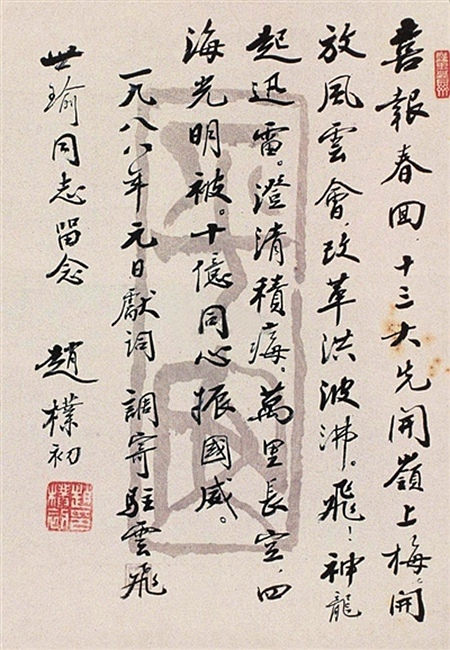 喜報春回，十三大先開嶺上梅。開
放風雲會，改革洪波沸。飛！神龍
起迅雷。澄清積痗。萬里長空，四
海光明被。十億同心振國威。
一九八八年元日獻詞 調寄駐雲飛
世瑜同志留念 趙樸初